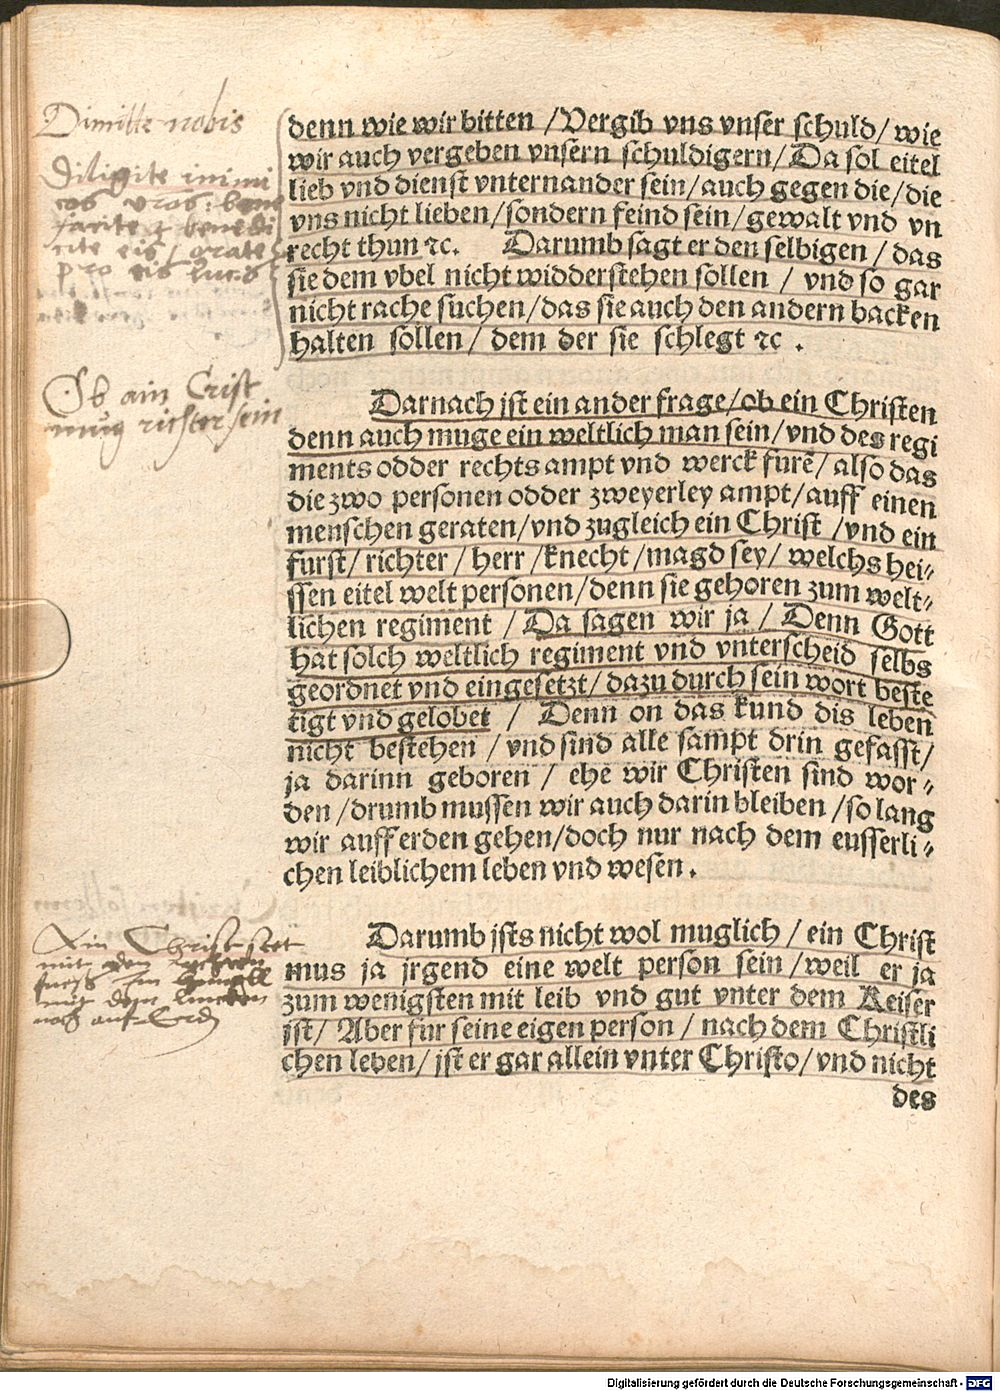 Dimitte nobis
Diligite inimi
cos vros: bene
facite & benedi
cite eis / orate
pro eis
Ob ain Crist
mug richter sein
Ein Christ
mit dem
fues Im himell
mit dem lincken
auf Erd
denn wie wir bitten /Vergib vns vnser schuld/ wie
wir auch vergeben vnsern schuldigern/ Da sol eitel
lieb vnd dienst vnternander sein/auch gegen die/die
vns nicht lieben/sondern feind sein/gewalt vnd vn
recht thun ꝛc. Darumb sagt er den selbigen / das
sie dem vbel nicht widderstehen sollen / vnd so gar
nicht rache suchen/das sie auch den andern backen
halten sollen/ dem der sie schlegt ꝛc .
Darnach jst ein ander frage/ob ein Christen
denn auch muge ein weltlich man sein/vnd des regi
ments odder rechts ampt vnd werck furẽ/ also das
die zwo personen odder zweyerley ampt/auff einen
menschen geraten/vnd zugleich ein Christ /vnd ein
furst/ richter / herr /knecht/magd sey/ welchs hei⸗
ssen eitel welt personen/denn sie gehoren zum welt⸗
lichen regiment / Da sagen wir ja / Denn Gott
hat solch weltlich regiment vnd vnterscheid selbs
geordnet vnd eingesetzt/ dazu durch sein wort beste
tigt vnd gelobet / Denn on das kund dis leben
nicht bestehen /vnd sind alle sampt drin gefasst/
ja darinn geboren / ehe wir Christen sind wor⸗
den /drumb mussen wir auch darin bleiben /so lang
wir auff erden gehen/doch nur nach dem eusserli⸗
chen leiblichem leben vnd wesen.
Darumb jsts nicht wol muglich / ein Christ
mus ja jrgend eine welt person sein/weil er ja
zum wenigsten mit leib vnd gut vnter dem Keiser
jst/ Aber fur seine eigen person / nach dem Christli
chen leben/ jst er gar allein vnter Christo/ vnd nicht
des
Digitalisierung gefördert durch die Deutsche Forschungsgemeinschaft - DFG